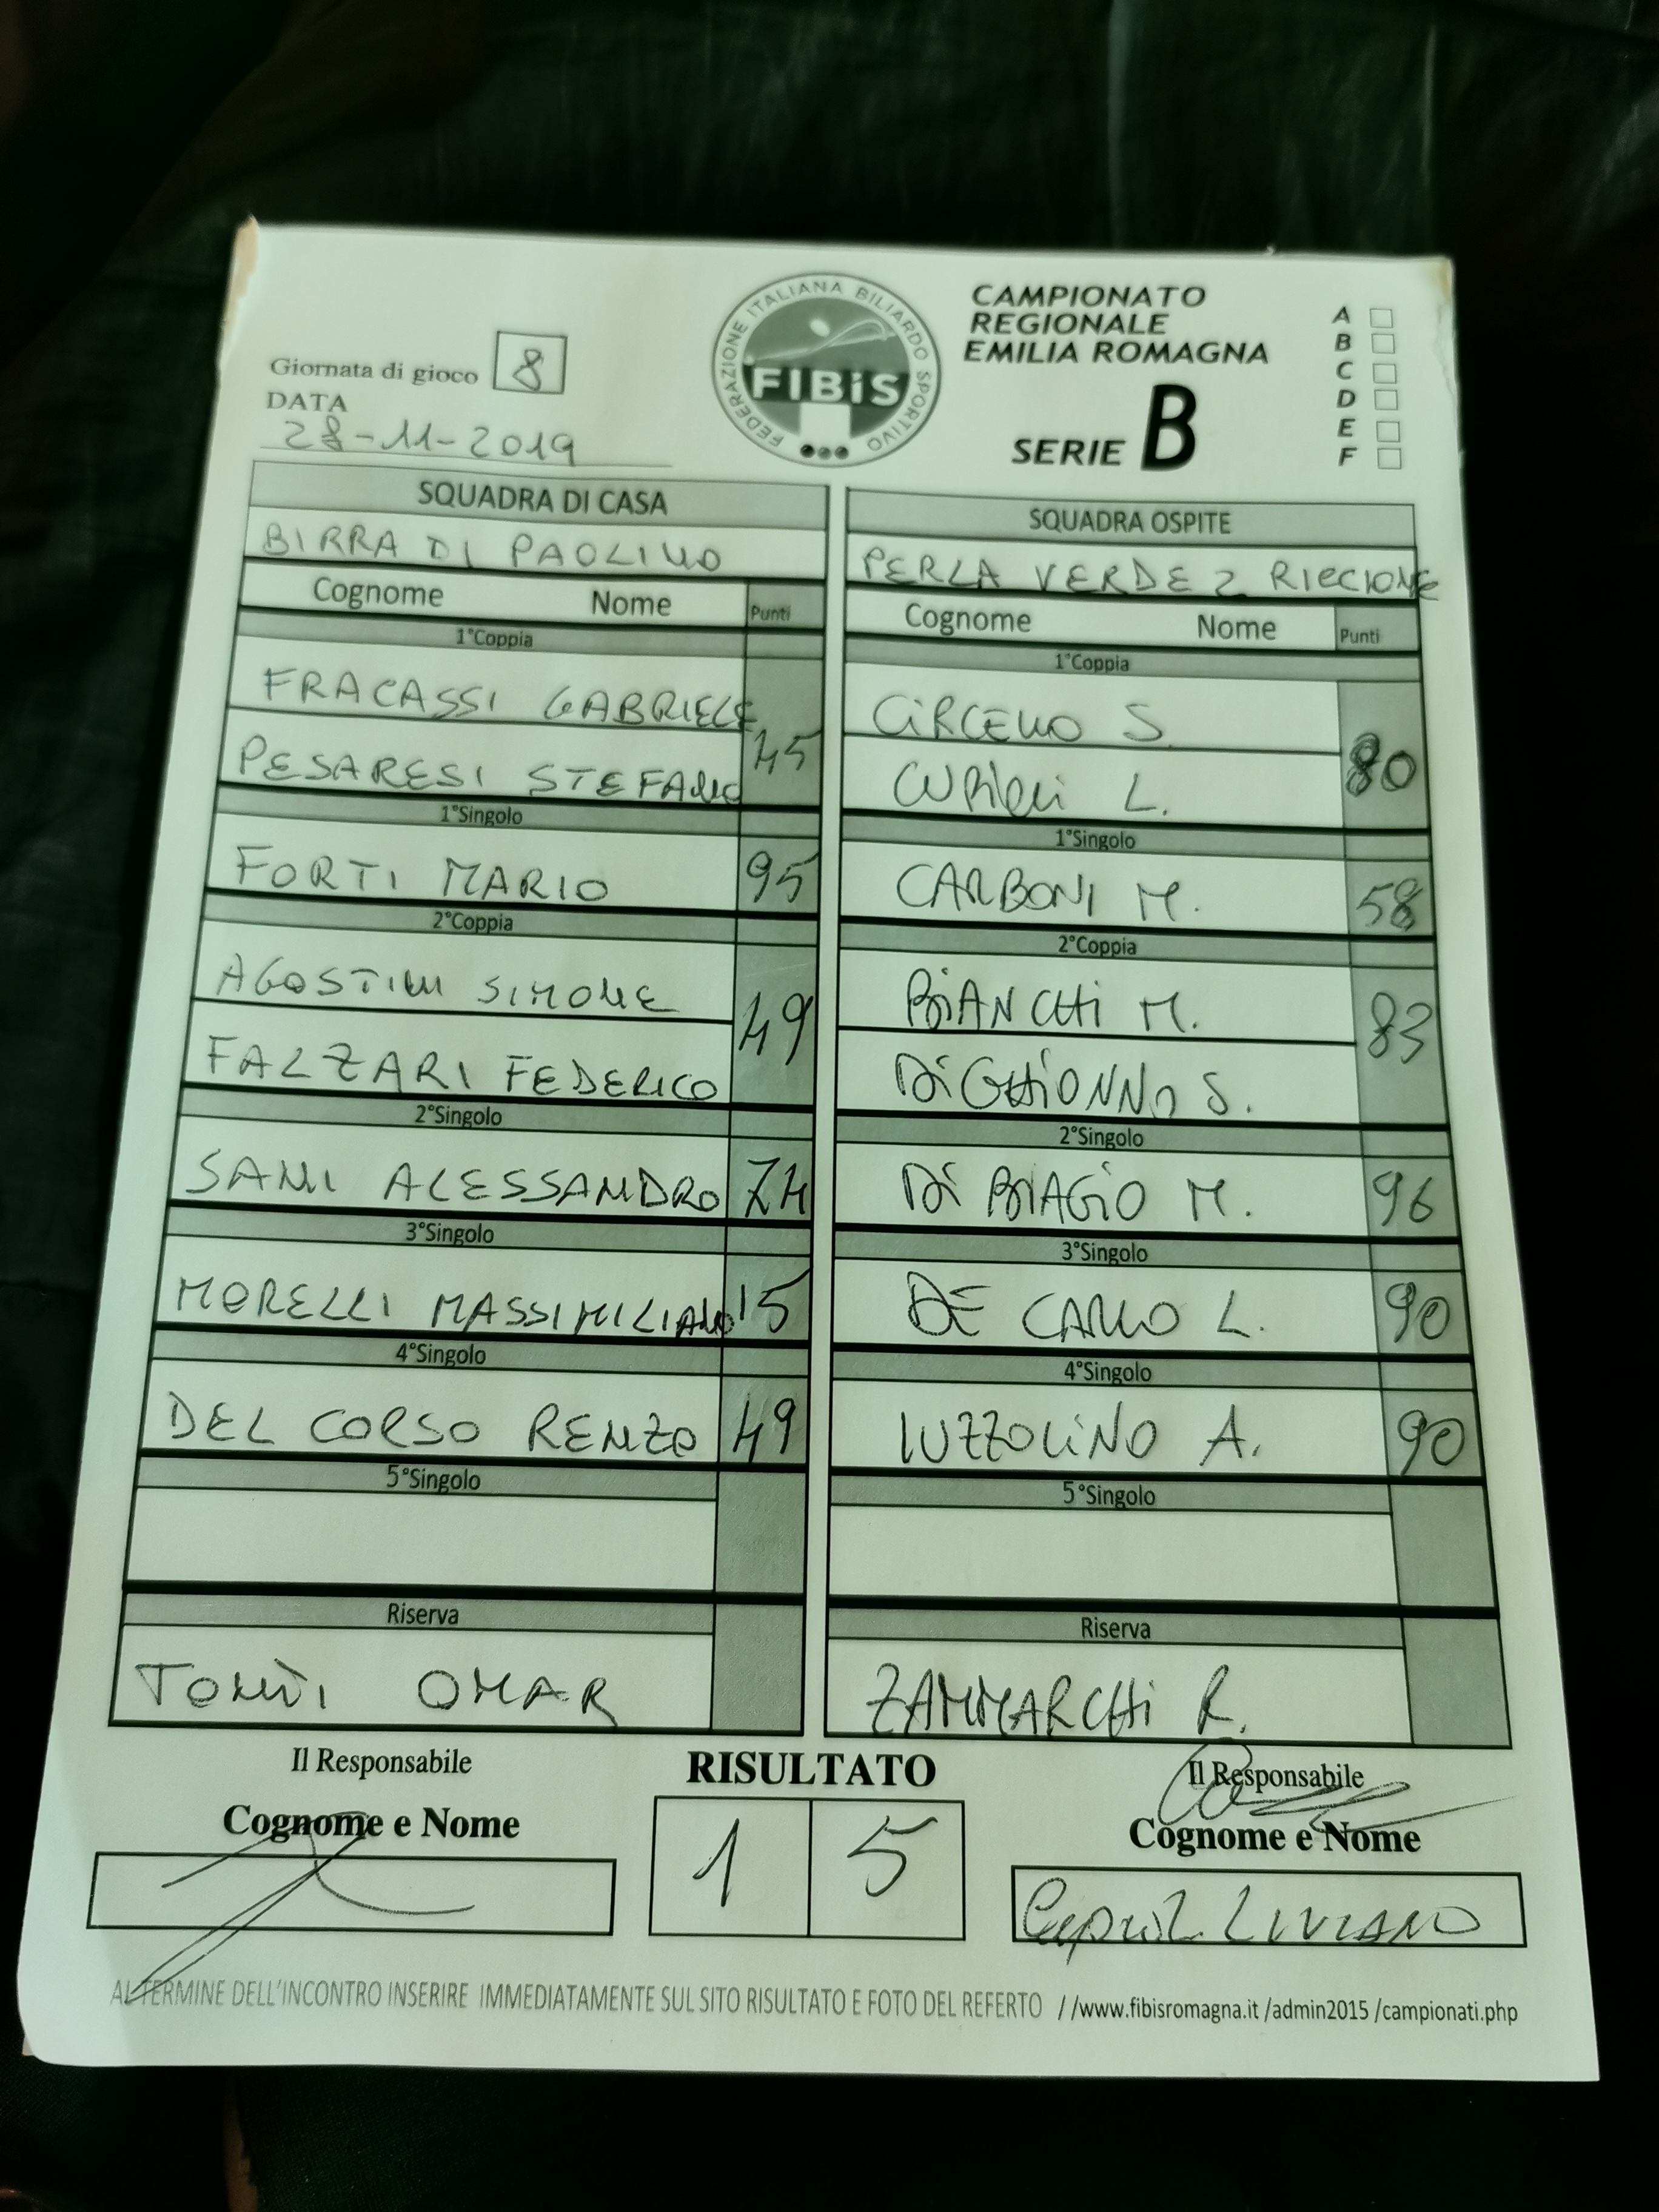 FEDERAZIONE ITALIANA BILIARDO SPORTIVO
FIBiS
CAMPIONATO
REGIONALE
EMILIA ROMAGNA
SERIE B
A
B
C
D
E
F
Giornata di gioco 8
DATA
28-11-2019
SQUADRA DI CASA
BIRRA DI PAOLINO
Cognome Nome Punti
1°Coppia
FRACASSI GABRIELE
45
PESARESI STEFANO
1°Singolo
FORTI MARIO 95
2°Coppia
AGOSTINI SIMONE
49
FALZARI FEDERICO
2°Singolo
SANI ALESSANDRO 74
3°Singolo
MORELLI MASSIMILIANO 15
4°Singolo
DEL CORSO RENZO 49
5°Singolo
Riserva
TONTI OMAR
SQUADRA OSPITE
PERLA VERDE 2 RICCIONE
Cognome Nome Punti
1°Coppia
CIRCELLO S.
80
L.
1°Singolo
CARBONI M. 58
2°Coppia
BIANCHI M.
83
DIGHIONNO S.
2°Singolo
DI BIAGIO M. 96
3°Singolo
DE CARLO L. 90
4°Singolo
IUZZOLINO A. 90
5°Singolo
Riserva
ZAMMARCHI R.
Il Responsabile
Cognome e Nome
RISULTATO
1 5
Il Responsabile
Cognome e Nome
LIVIANO
AL TERMINE DELL'INCONTRO INSERIRE IMMEDIATAMENTE SUL SITO RISULTATO E FOTO DEL REFERTO //www.fibisromagna.it /admin2015 /campionati.php